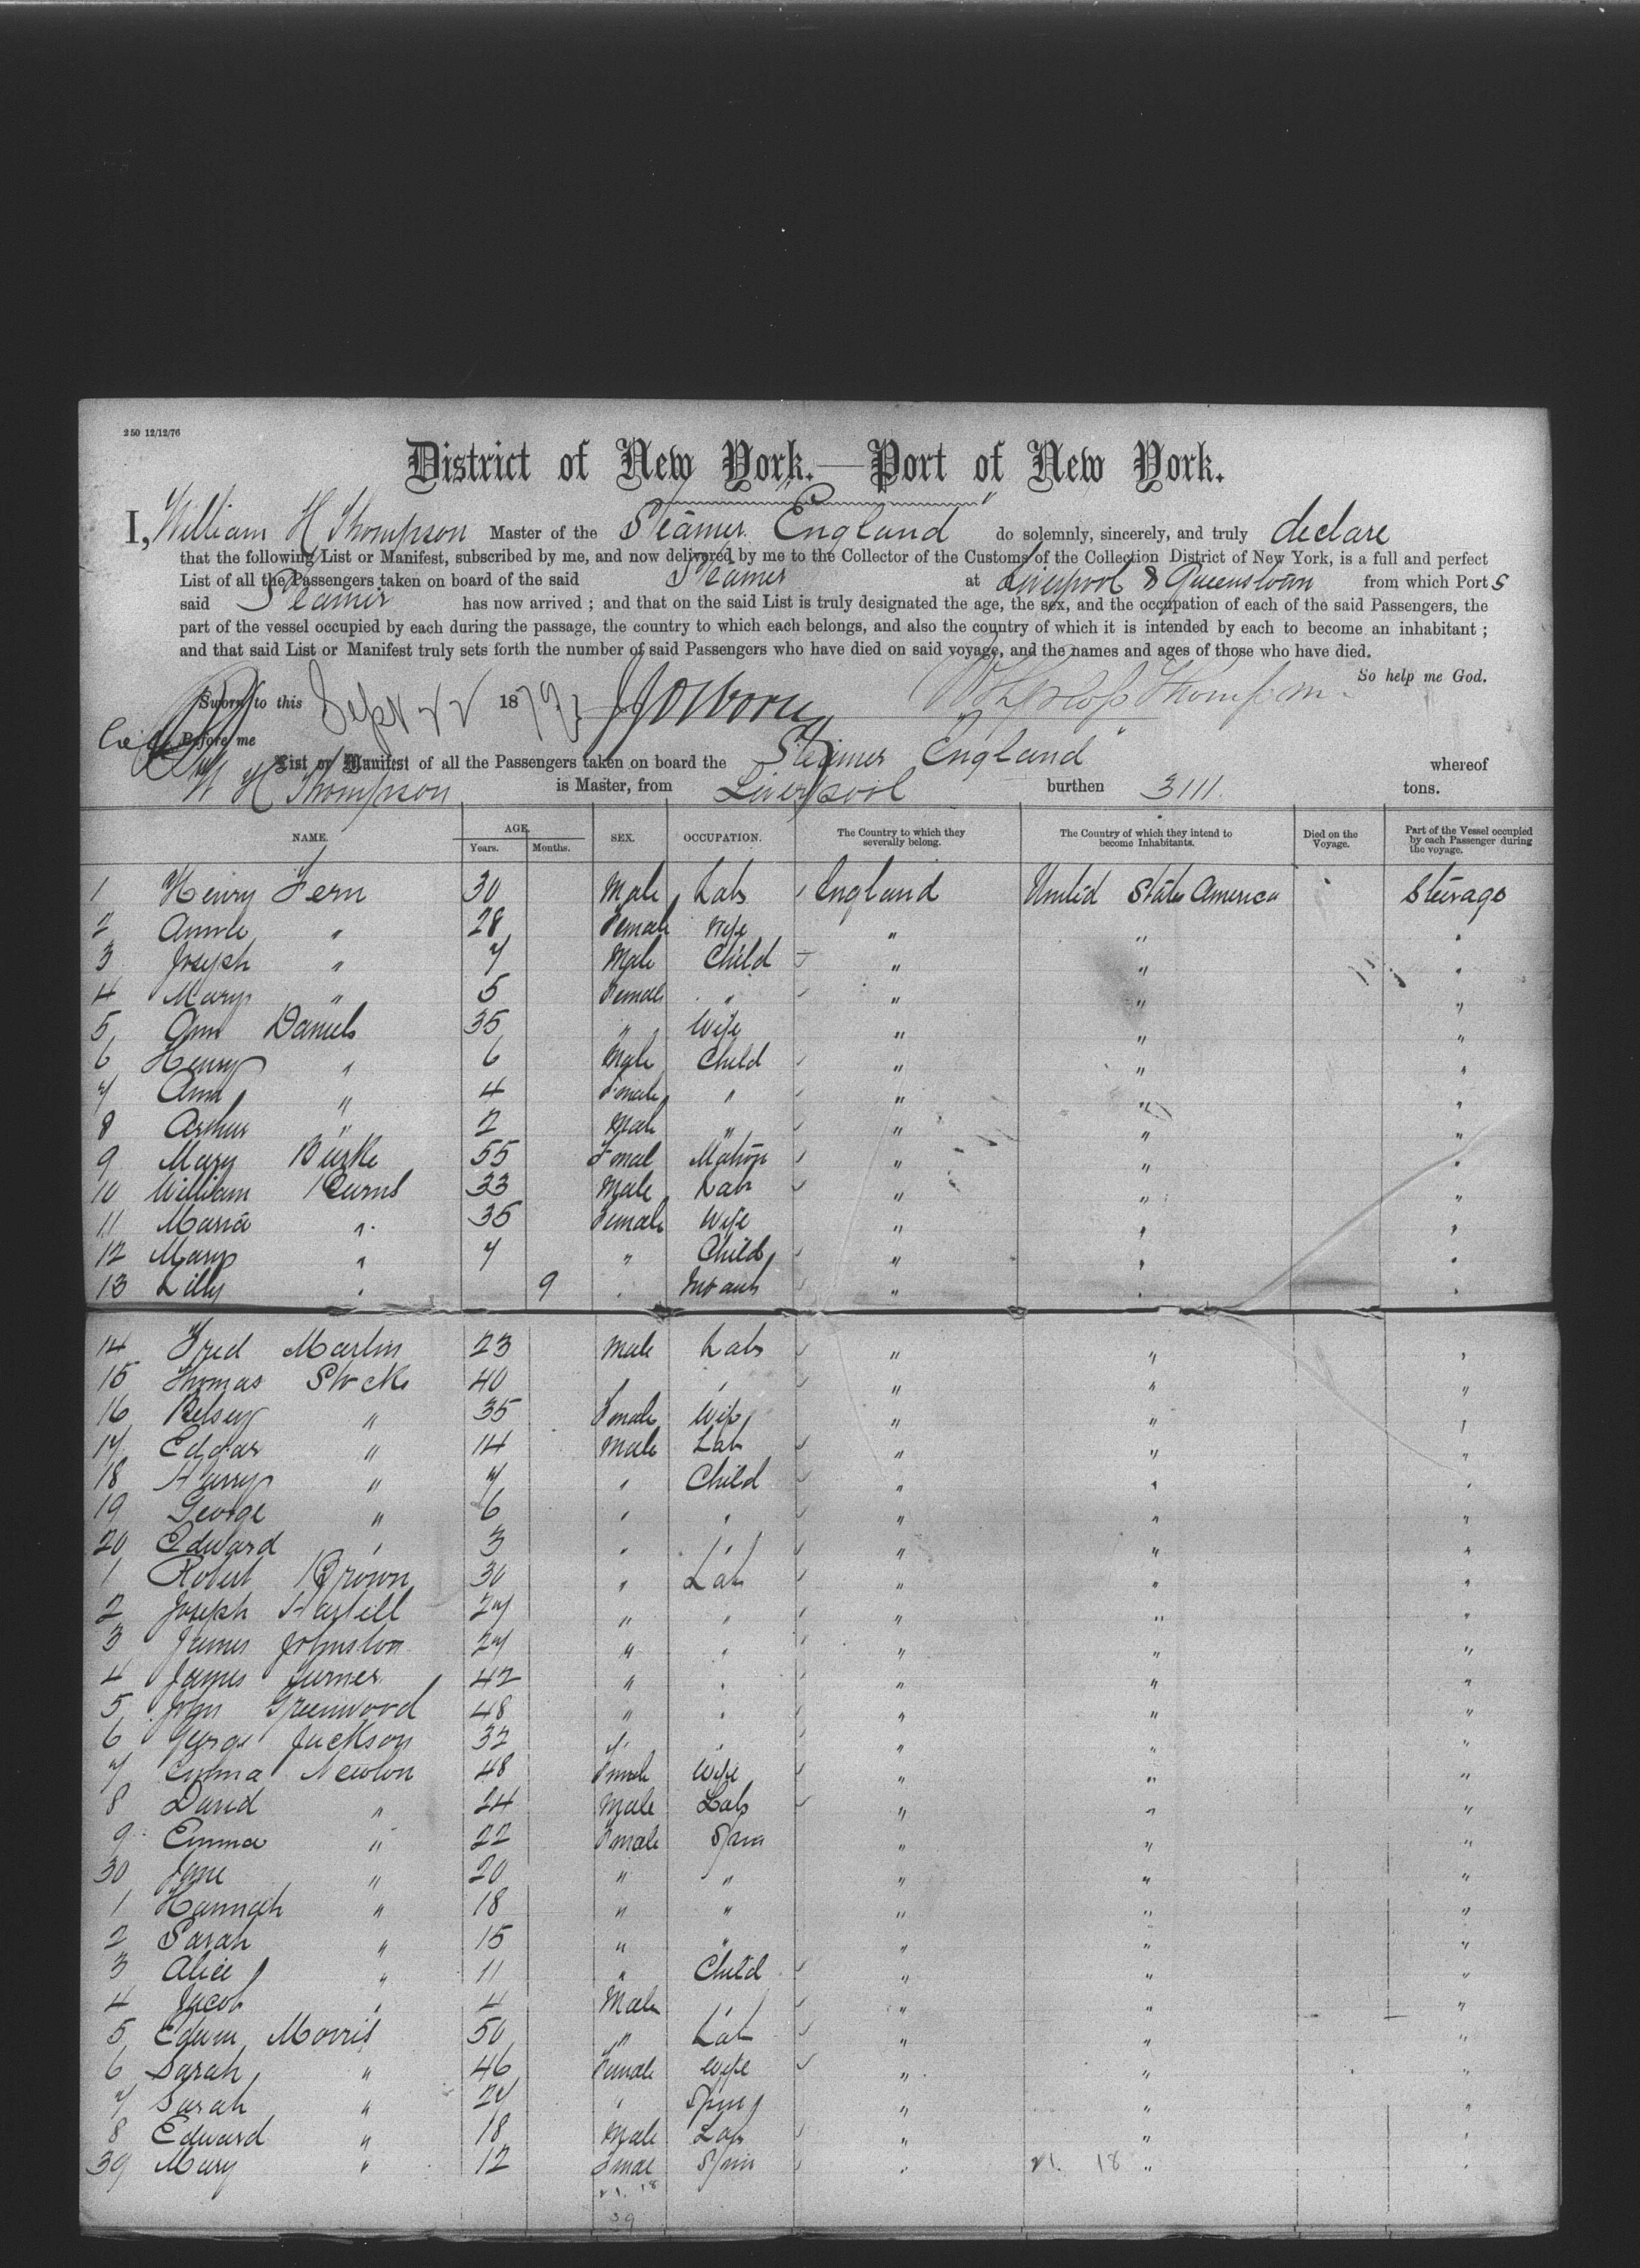 250 12/12/76
District of New York.—Port of New York.
I, William H Thompson Master of the Steamer "England" do solemnly, sincerely, and truly declare
that the following List or Manifest, subscribed by me, and now delivered by me to the Collector of the Customs of the Collection District of New York, is a full and perfect
List of all the Passengers taken on board of the said Steamer at Liverpool & Queenstown from which Port s
said Steamer has now arrived ; and that on the said List is truly designated the age, the sex, and the occupation of each of the said Passengers, the
part of the vessel occupied by each during the passage, the country to which each belongs, and also the country of which it is intended by each to become an inhabitant ;
and that said List or Manifest truly sets forth the number of said Passengers who have died on said voyage, and the names and ages of those who have died.
So help me God.
Sworn to this Sept 22 1879 Thompson
Before me
List or Manifest of all the Passengers taken on board the Steamer "England" whereof
W H Thompson is Master, from Liverpool burthen 3111 tons.
NAME. AGE. Years. Months. SEX. OCCUPATION. The Country to which they severally belong. The Country of which they intend to become Inhabitants. Died on the Voyage. Part of the Vessel occupied by each Passenger during the voyage.
1 Henry Fern 30 Male Lab England United States America Steerage
2 Annie " 28 Female Wife " " "
3 Joseph " 7 Male Child " " "
4 Mary " 5 Female " " " "
5 Ann Daniels 35 " Wife " " "
6 Henry " 6 Male Child " " "
7 Ann " 4 Female " " " "
8 Arthur " 2 Male " " " "
9 Mary Burke 55 Femal Matron " " "
10 William Burns 33 Male Lab " " "
11 Maria " 35 Female Wife " " "
12 Mary " 7 " Child " " "
13 Lilly " 9 " Infant " " "
14 Fred Martin 23 Male Lab " " "
15 Thomas Stocks 40 " " " " "
16 Betsey " 35 Female Wife " " "
17 Edgar " 14 Male Lab " " "
18 Harry " 7 " Child " " "
19 George " 6 " " " " "
20 Edward " 3 " " " " "
1 Robert Brown 30 " Lab " " "
2 Joseph Hartill 27 " " " " "
3 James Johnston 27 " " " " "
4 James Turner 42 " " " " "
5 John Greenwood 48 " " " " "
6 George Jackson 32 " " " " "
7 Emma Newton 48 Female Wife " " "
8 David " 24 Male Lab " " "
9 Emma " 22 Female Spin " " "
30 Jane " 20 " " " " "
1 Hannah " 18 " " " " "
2 Sarah " 15 " " " " "
3 Alice " 11 " Child " " "
4 Jacob " 4 Male " " " "
5 Edwin Morris 50 " Lab " " "
6 Sarah " 46 Female Wife " " "
7 Sarah " 24 " Spin " " "
8 Edward " 18 Male Lab " " "
39 Mary " 12 Femal Spin " 21. 18 " "
21. 18
39